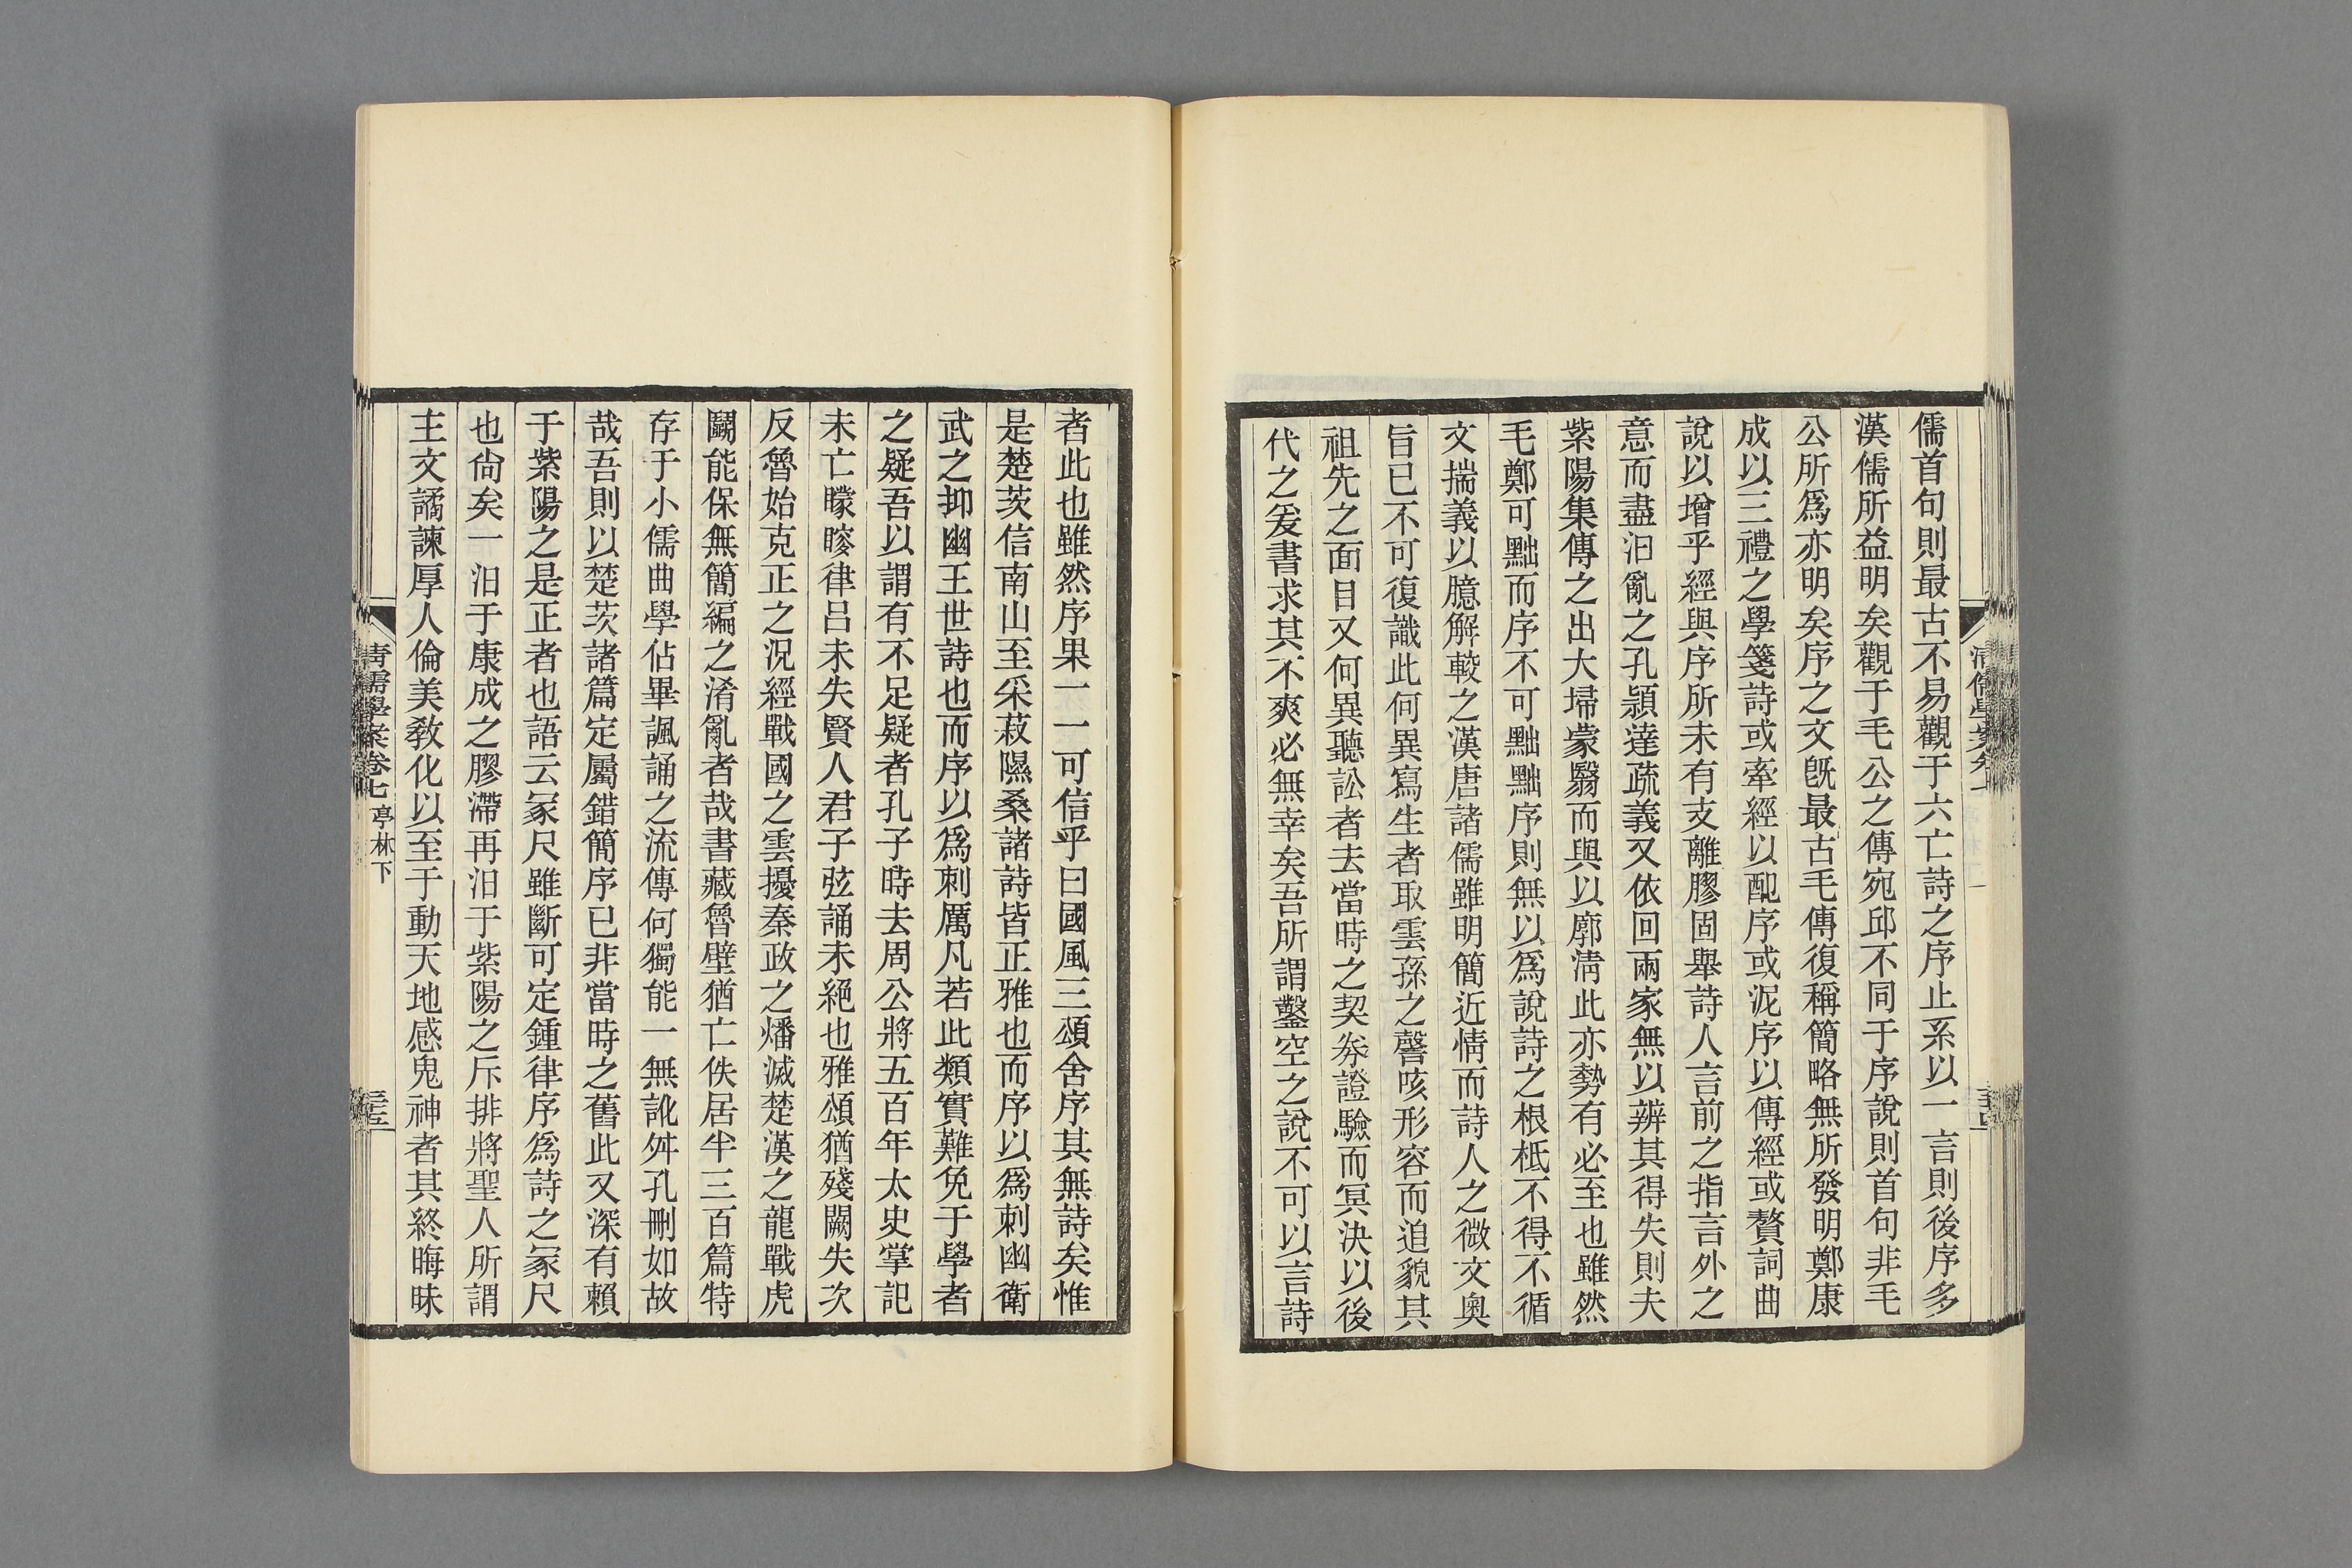 儒首句則最古不易觀于六亡詩之序止系以一言則後序多
漢儒所益明矣觀于毛公之傳宛邱不同于序說則首句非毛
公所爲亦明矣序之文旣最古毛傳復稱簡略無所發明鄭康
成以三禮之學箋詩或牽經以配序或泥序以傳經或贅詞曲
說以增乎經與序所未有支離膠固舉詩人言前之指言外之
意而盡汩亂之孔潁達疏義又依回兩家無以辨其得失則夫
紫陽集傳之出大埽蒙翳而與以廓淸此亦勢有必至也雖然
毛鄭可黜而序不可黜黜序則無以爲說詩之根柢不得不循
文揣義以臆解較之漢唐諸儒雖明簡近情而詩人之微文奧
旨已不可復識此何異寫生者取雲孫之謦咳形容而追貌其
祖先之面目又何異聽訟者去當時之契券證驗而冥決以後
代之爰書求其不爽必無幸矣吾所謂鑿空之說不可以言詩
者此也雖然序果一一可信乎曰國風三頌舍序其無詩矣惟
是楚茨信南山至采菽隰桑諸詩皆正雅也而序以爲刺幽衛
武之抑幽王世詩也而序以爲刺厲凡若此類實難免于學者
之疑吾以謂有不足疑者孔子時去周公將五百年太史掌記
未亡矇瞍律呂未失賢人君子弦誦未絕也雅頌猶殘闕失次
反魯始克正之況經戰國之雲擾秦政之燔滅楚漢之龍戰虎
鬭能保無簡編之淆亂者哉書藏魯壁猶亡佚居半三百篇特
存于小儒曲學佔畢諷誦之流傳何獨能一無訛舛孔刪如故
哉吾則以楚茨諸篇定屬錯簡序已非當時之舊此又深有賴
于紫陽之是正者也語云冢尺雖斷可定鍾律序爲詩之冢尺
也尙矣一汩于康成之膠滯再汩于紫陽之斥排將聖人所謂
主文譎諫厚人倫美敎化以至于動天地感鬼神者其終晦昧
淸儒學案卷七 亭林下